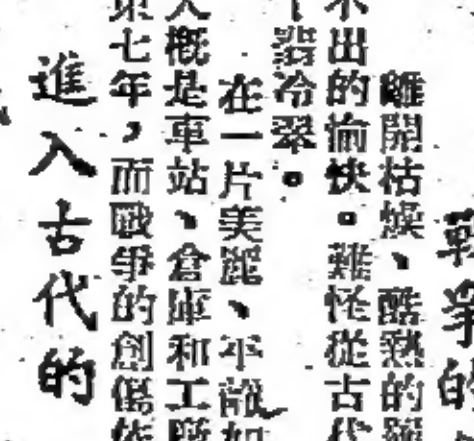 戰爭的
離開枯燥、酷熱的
不出的愉快。難怪從古代
翡冷翠。
在一片美麗、平靜如
大概是車站、倉庫和工廠
束七年，而戰爭的創傷依
進入古代的